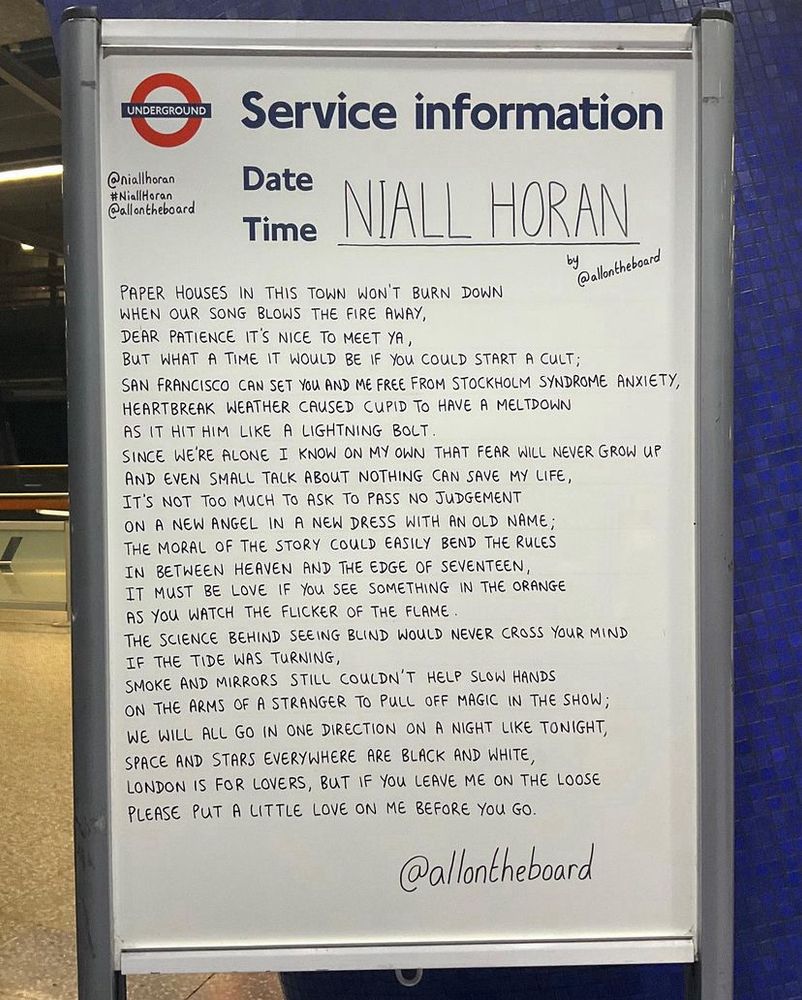 UNDERGROUND
Service information
@niallhoran
#NiallHoran
@allontheboard
Date
Time
NIALL HORAN
by
@allontheboard
PAPER HOUSES IN THIS TOWN WON'T BURN DOWN
WHEN OUR SONG BLOWS THE FIRE AWAY,
DEAR PATIENCE IT'S NICE TO MEET YA,
BUT WHAT A TIME IT WOULD BE IF YOU COULD START A CULT;
SAN FRANCISCO CAN SET YOU AND ME FREE FROM STOCKHOLM SYNDROME ANXIETY,
HEARTBREAK WEATHER CAUSED CUPID TO HAVE A MELTDOWN
AS IT HIT HIM LIKE A LIGHTNING BOLT.
SINCE WE'RE ALONE I KNOW ON MY OWN THAT FEAR WILL NEVER GROW UP
AND EVEN SMALL TALK ABOUT NOTHING CAN SAVE MY LIFE,
IT'S NOT TOO MUCH TO ASK TO PASS NO JUDGEMENT
ON A NEW ANGEL IN A NEW DRESS WITH AN OLD NAME;
THE MORAL OF THE STORY COULD EASILY BEND THE RULES
IN BETWEEN HEAVEN AND THE EDGE OF SEVENTEEN,
IT MUST BE LOVE IF YOU SEE SOMETHING IN THE ORANGE
AS YOU WATCH THE FLICKER OF THE FLAME.
THE SCIENCE BEHIND SEEING BLIND WOULD NEVER CROSS YOUR MIND
IF THE TIDE WAS TURNING,
SMOKE AND MIRRORS STILL COULDN'T HELP SLOW HANDS
ON THE ARMS OF A STRANGER TO PULL OFF MAGIC IN THE SHOW;
WE WILL ALL GO IN ONE DIRECTION ON A NIGHT LIKE TONIGHT,
SPACE AND STARS EVERYWHERE ARE BLACK AND WHITE,
LONDON IS FOR LOVERS, BUT IF YOU LEAVE ME ON THE LOOSE
PLEASE PUT A LITTLE LOVE ON ME BEFORE YOU GO.
@allontheboard